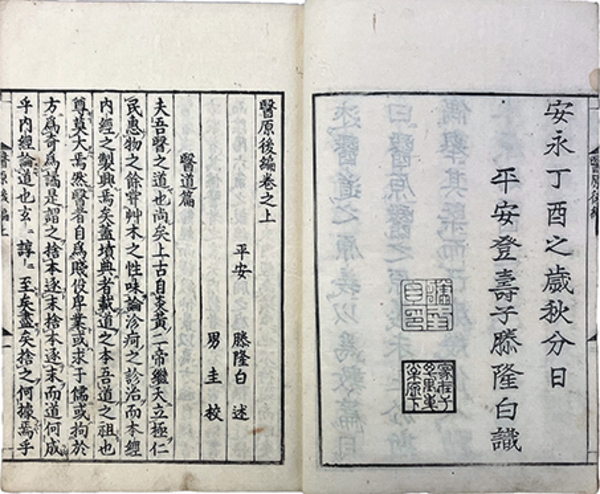 安永丁酉之歳秋分日
平安登壽子滕隆白識
醫原後編卷之上
平安 滕隆白 述
男 圭 校
醫道篇
夫吾醫之道也尚矣上古自炎黄二帝繼天立極仁
民惠物之餘甞艸木之性味論沴疴之診治而本經
内經之製興焉矣蓋墳典者載道之本吾道之祖也
尊莫大焉然醫者自爲賤伎卑業或求于儒或拘於
方爲奇爲譎是謂之捨本逐末捨本逐末而道何成
乎内經論道也玄〻諄〻至矣盡矣捨之何據焉乎
醫原後編上